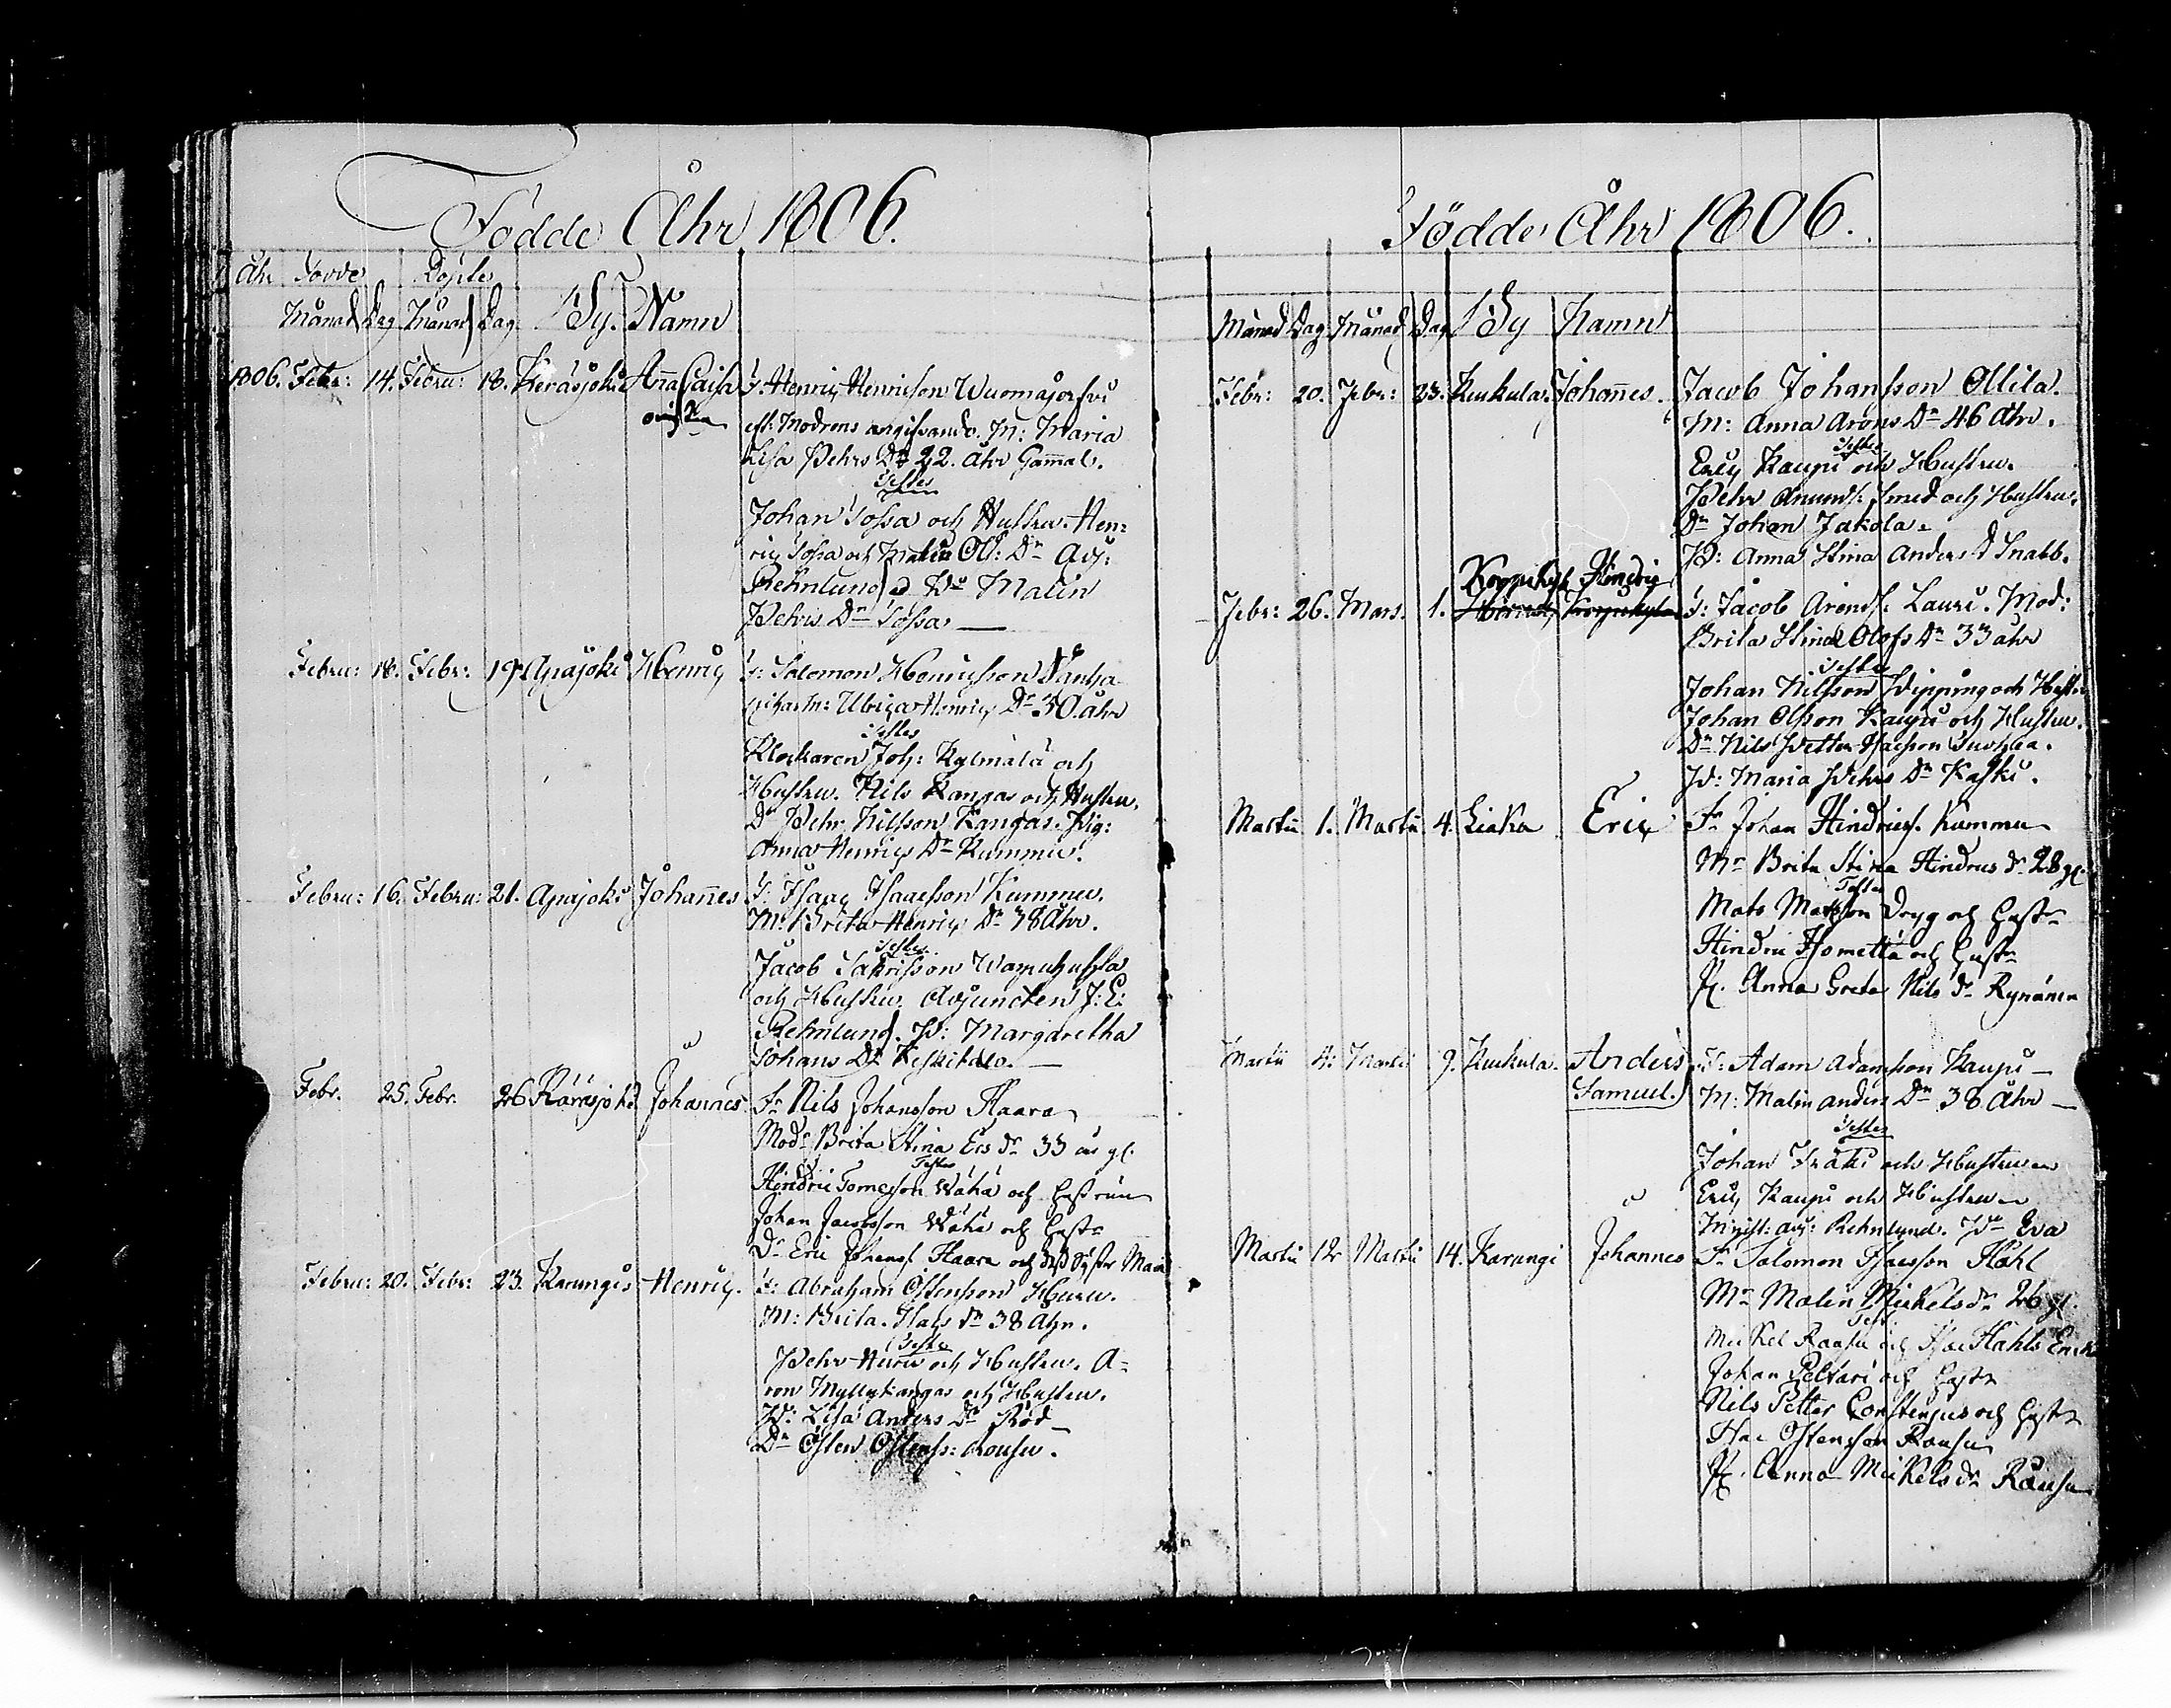 Födde Åhr 1806.
Åhr Födde Döpte
Månad Dag Månad Dag By. Namn
1806. Febr: 14. Febru: 18. Keräsjoki Anna Caisa F: Henric Henricson Wuomajerfvi
oägta
efl: Modrens angifvande. M: Maria
Lisa Pehrs Dr 22. åhr Gammal.
Testes
Johan Tossa och Hustru. Hen:
ric Tossa och Malin Ol: Dr Adj:
Rehnlund Malin
Pehrs Dr Tossa
Febru: 18. Febr: 19. Apajoki Henric F: Salomon Henricsson
M: Ulrica Henrics Dr 30. åhr
Testes
Klockaren Joh: Kylmälä och
Hustru. Nils Kangas och Hustru.
Dr Pehr Nilsson Kangas. Pig:
Anna Henrics Dr Kummu.
Febru: 16. Febru: 21. Apajoki Johañes F: Isaac Isacsson Kummu.
M: Brita Henrics Dr 38 Åhr.
Testes
Jacob
och Hustru. Adjuncten J: E:
Rehnlund. P: Margaretha
Johans Dr Keskitalo.
Febr. 25. Febr. 26 Käräsjoki Johannes Fr Nils Johansson Haara
Modr Brita Stina Ers dr 33 år gl.
Testes
Hindric Tomesson Wähä och hustrun
Johan Jacobsson Wähä och Hustr
Dr Eric Johanss. Haara och dess Syster Maria
Febru: 20. Febr: 23. Karungi Henric. F: Abraham Ostensson Huru.
M: Brita. Hals dr 38 Åhr.
Testes
Pehr Huru och Hustru. A=
ron Myllykangas och Hustru.
P: Lisa Anders Dr Röd
Dr Östen Östenss: Rousu.
Födde Åhr 1806.
Månad Dag Månad Dag By Namn
Febr: 20. Febr: 23. Kukula. Johañes. Jacob Johansson Ollila.
M: Anna Arons Dr 46 Åhr.
Testes
Eric Kaupi och Hustru.
Pehr Amunds: Smed och Hustru.
Dr Johan Jakola.
P: Anna Stina Anders d Snabb.
Korpikylä Hindric
Febr: 26. Mars. 1. Henric Korpikylä F: Jacob Arends: Lauri. Mod:
Brita Stina Olofs Dr 33 åhr
Testes
Johan Nilsson Wipping och Hustr.
Johan Olsson Kaupi och Hustru.
Dr Nils Petter Isacsson
P: Maria Pehrs Dr Kaski.
Martii 1. Martii 4. Liaka Eric Fr Johan Hindricss. Kummu
Mr Brita Stina Hindrics dr 28 gl.
Testes
Mats Matsson Dryg och Hustr
Hindric Isometta och Hustr
P. Anna Greta Nils dr Rynänen
Martii 4. Martii 9. Kukula. Anders F: Adam Adamsson Kaupi
Samuel. M: Malin Anders Dr 38 Åhr
Testes
Johan Fräki och Hustru
Eric Kaupi och Hustru
Magist: adj: Rehnlund. Pr Eva
Martii 12 Martii 14. Karungi Johannes Fr Salomon Isacsson Ståhl
Mr Malin Mickels dr 26 gl.
Test.
Mickel Rausu och Isac Ståhls Enka
Johan Peltari och Hustr
Nils Petter Corstenius och Hustr
Isac Ostensson Rousu
P. Anna Mickels dr Rausu